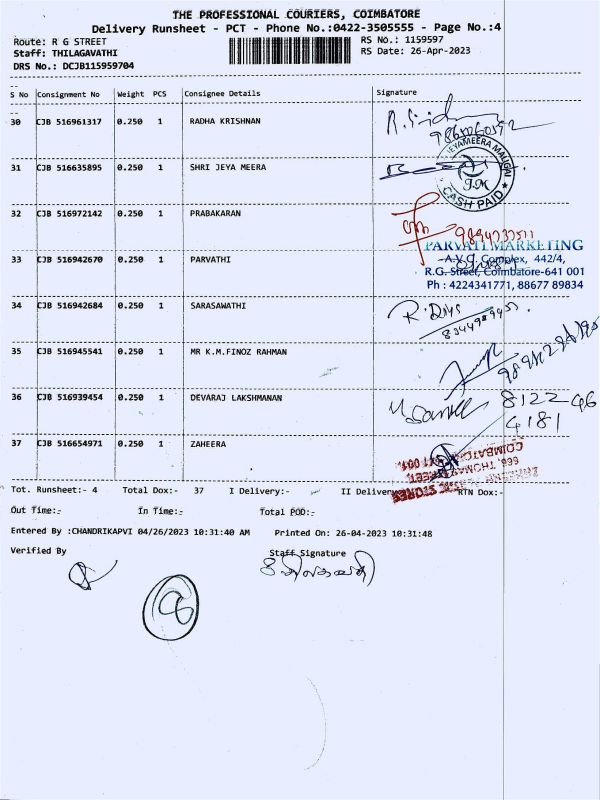 THE PROFESSIONAL COURIERS, COIMBATORE
Delivery Runsheet - PCT - Phone No.:0422-3505555 - Page No.:4
Route: R G STREET
RS No.: 1159597
Staff: THILAGAVATHI
RS Date: 26-Apr-2023
DRS No.: DCJB115959704
S No Consignment No Weight PCS Consignee Details Signature
30 CJB 516961317 0.250 1 RADHA KRISHNAN
31 CJB 516635895 0.250 1 SHRI JEYA MEERA
JEYAMEERA MALIGAI
J.M
CASH PAID
32 CJB 516972142 0.250 1 PRABAKARAN
9894737511
PARVATI MARKETING
33 CJB 516942670 0.250 1 PARVATHI
A.V.G. Complex, 442/4,
R.G. Street, Coimbatore-641 001
Ph : 4224341771, 88677 89834
34 CJB 516942684 0.250 1 SARASAWATHI
35 CJB 516945541 0.250 1 MR K.M.FINOZ RAHMAN
36 CJB 516939454 0.250 1 DEVARAJ LAKSHMANAN
8122 46
4181
37 CJB 516654971 0.250 1 ZAHEERA
Tot. Runsheet:- 4 Total Dox:- 37 I Delivery:- II Delivery RTN Dox:-
Out Time:- In Time:- Total POD:-
Entered By :CHANDRIKAPVI 04/26/2023 10:31:40 AM Printed On: 26-04-2023 10:31:48
Verified By Staff Signature